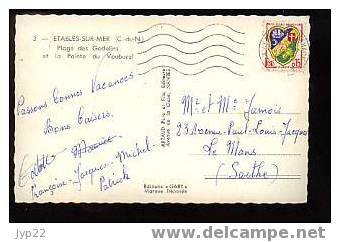 3 — ETABLES-SUR-MER (C.-du-N.)
Plage des Godelins
et la Pointe du Vauburel
Passons bonnes Vacances
Bons baisers.
Françoise - Jacques - Michel
Patrick
ARTAUD Père et Fils, Editeurs
Avenue de la Close, NANTES
Mr et Me Jamois
23 Avenue Paul-Louis-Jacques
Le Mans
(Sarthe)
Editions «GABY»
Marque Déposée
jyp22
delcampe.net